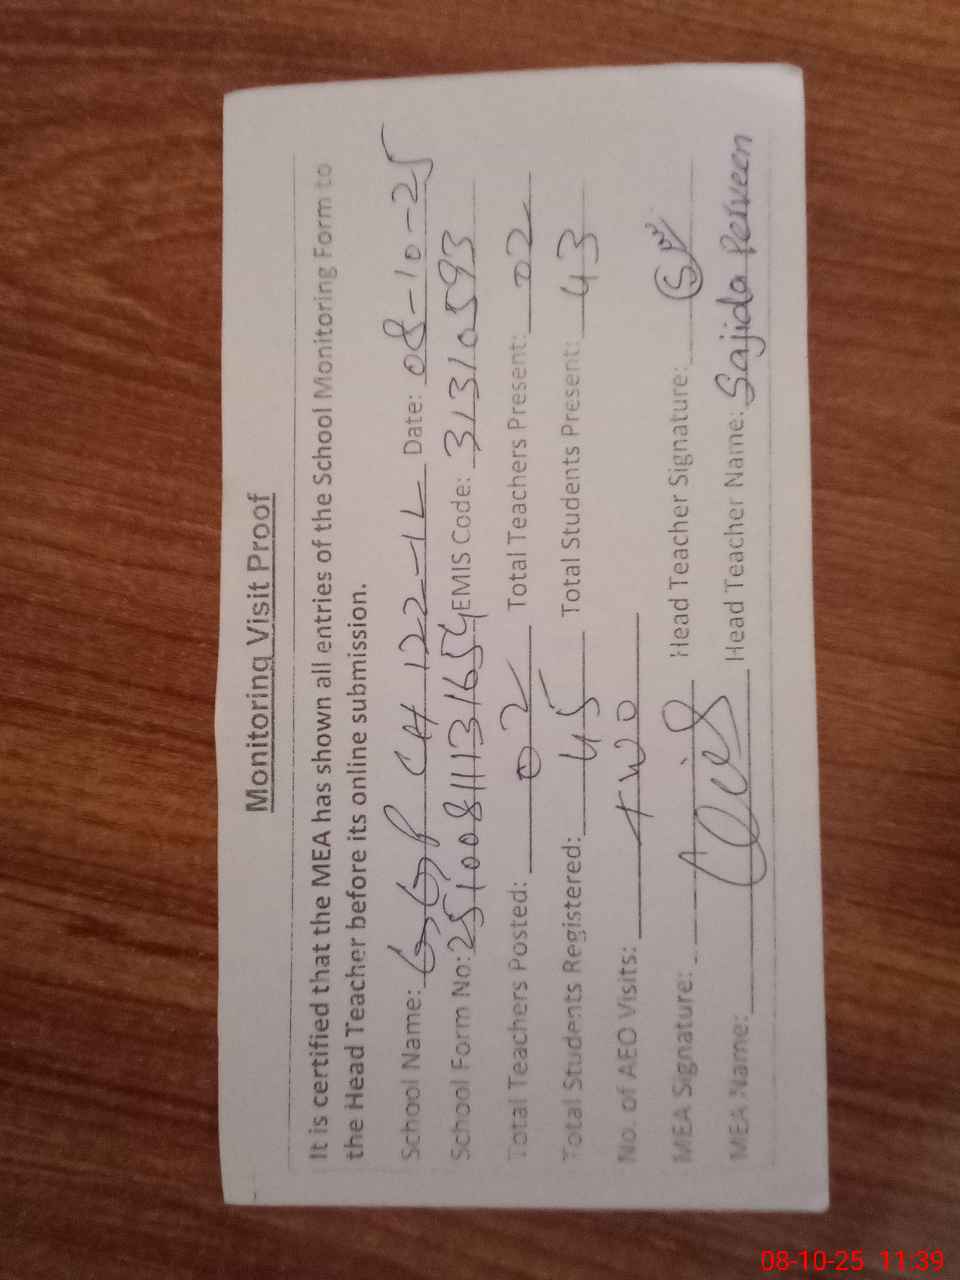 Monitoring Visit Proof
It is certified that the MEA has shown all entries of the School Monitoring Form to
the Head Teacher before its online submission.
School Name: GGP CH 122-1L Date: 08-10-25
School Form No: 25100811131654 EMIS Code: 31310593
Total Teachers Posted: 02 Total Teachers Present: 02
Total Students Registered: 45 Total Students Present: 43
No. of AEO Visits: TWO
MEA Signature: Head Teacher Signature:
MEA Name: Head Teacher Name: Sajida Perveen
08-10-25 11:39